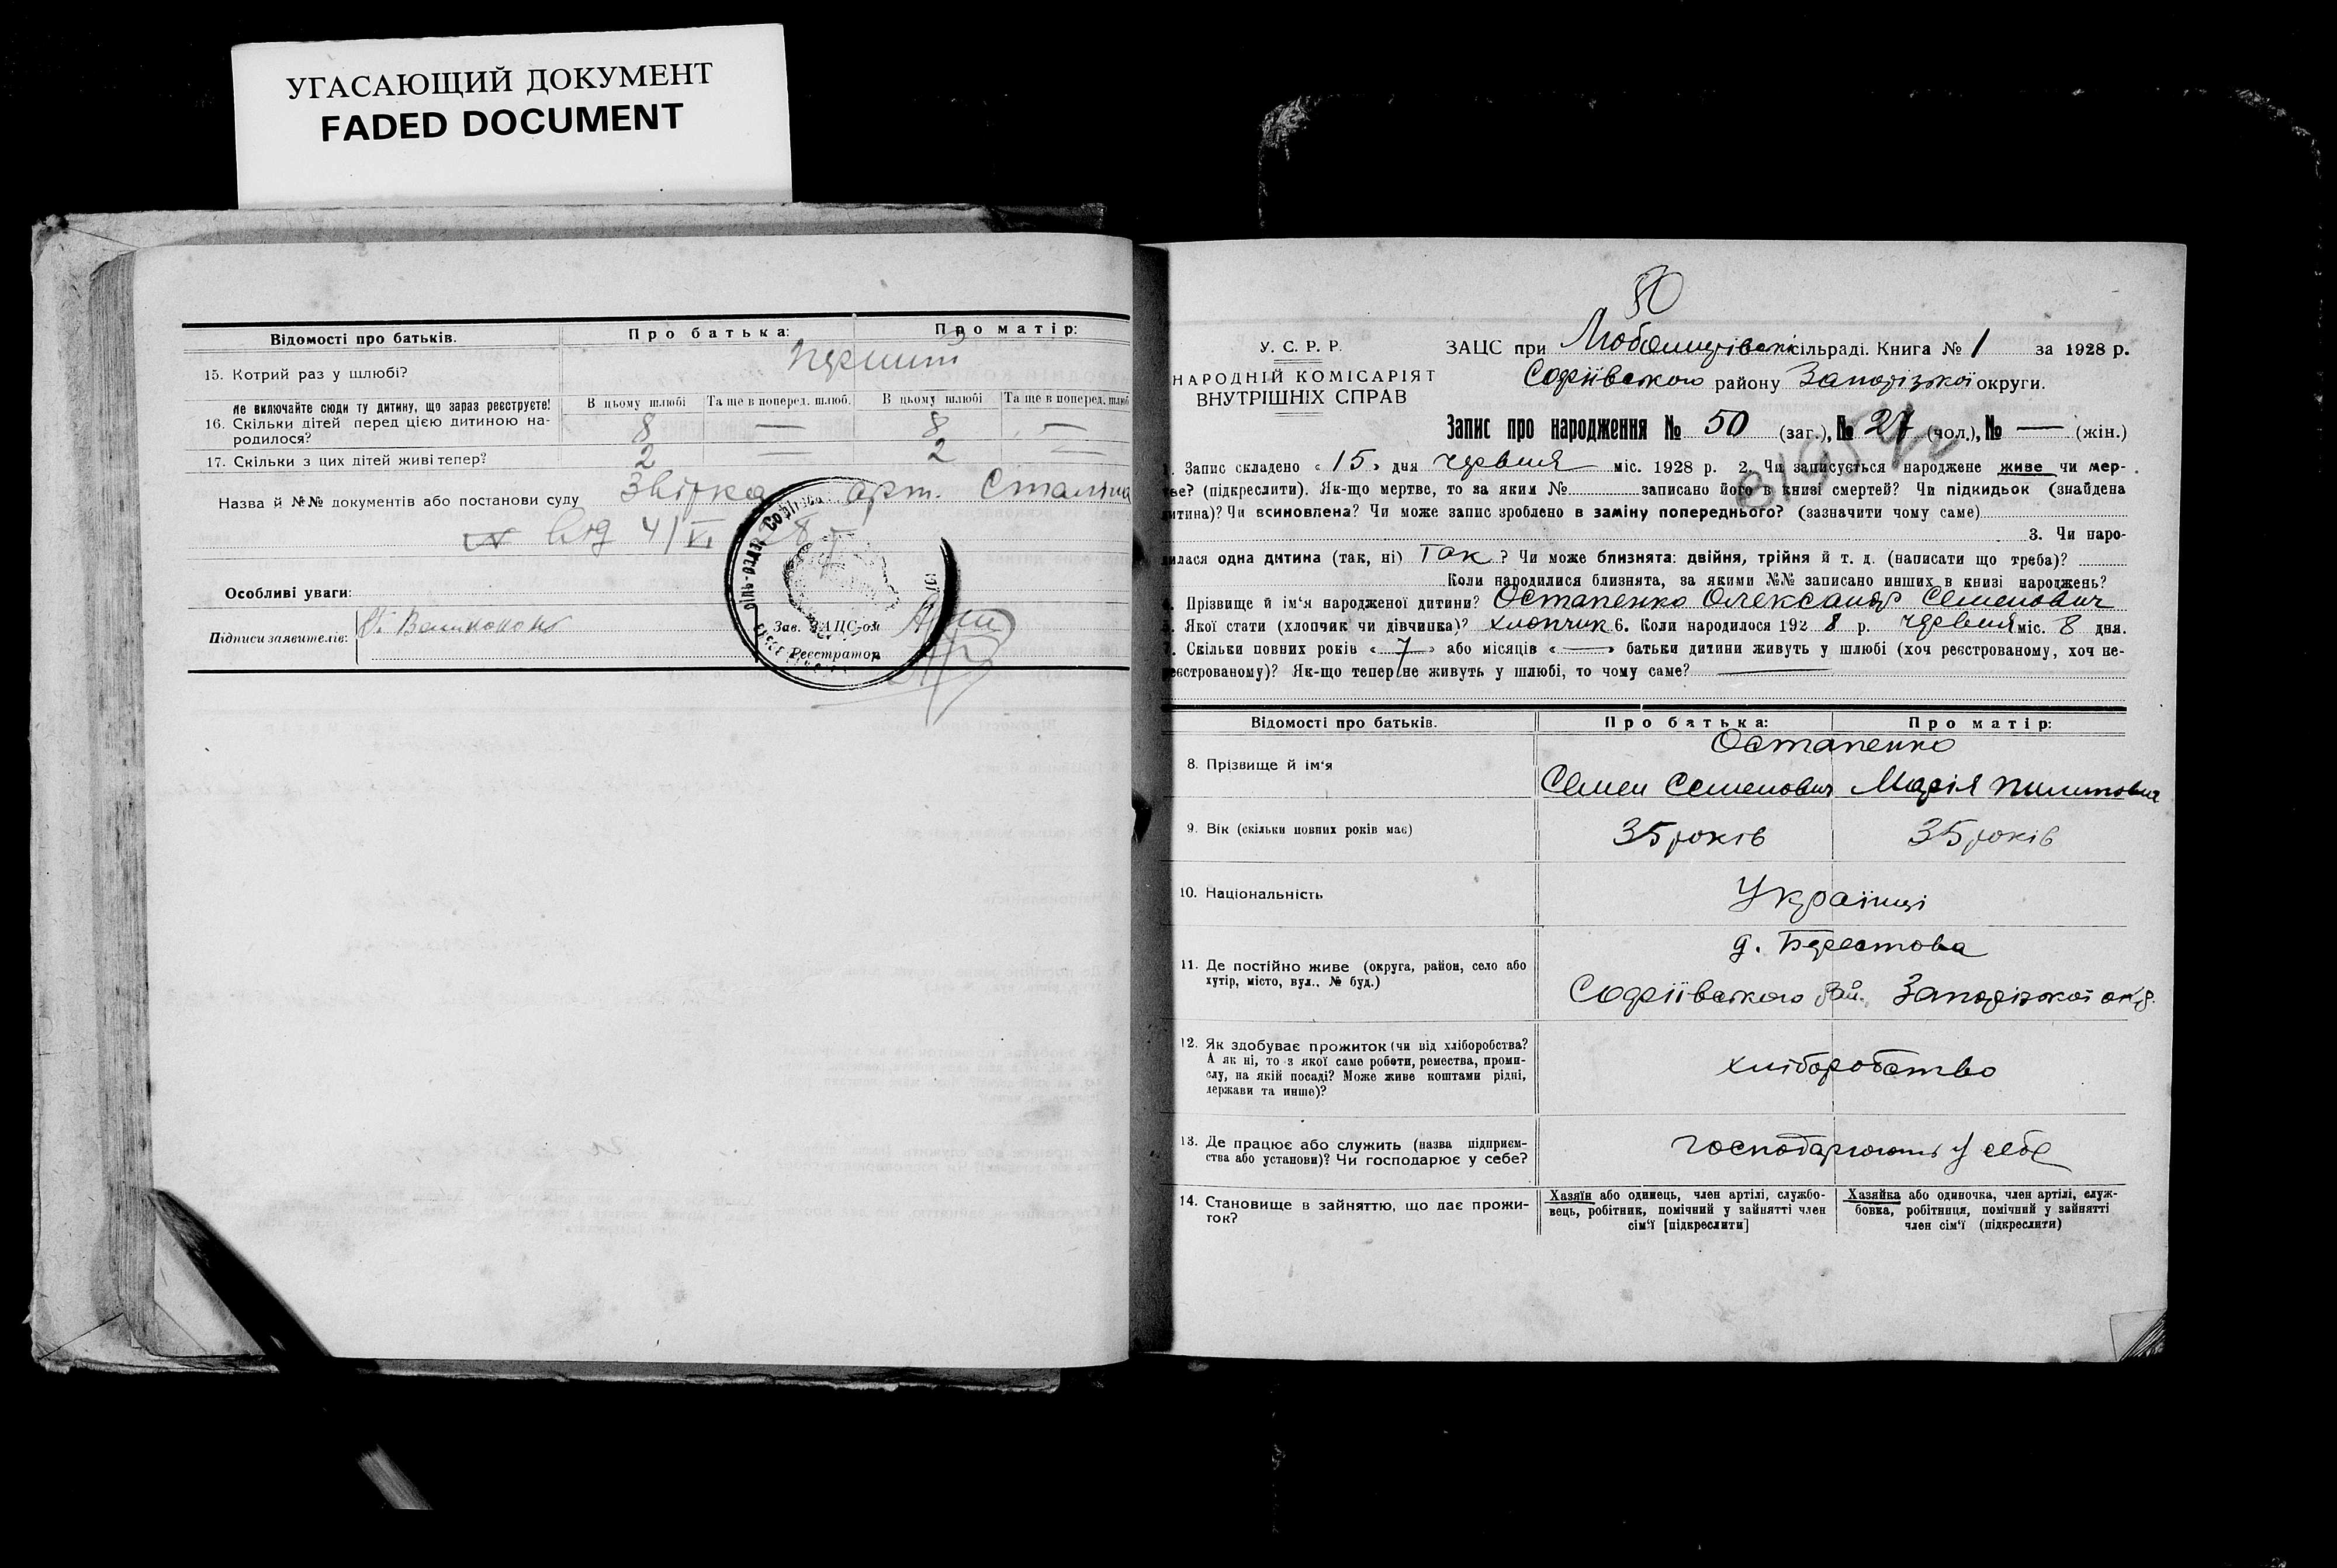 УГАСАЮЩИЙ ДОКУМЕНТ
FADED DOCUMENT
Відомості про батьків. Про батька: Про матір:
15. Котрий раз у шлюбі? перший
Не включайте сюди ту дитину, що зараз реєструєте! В цьому шлюбі Та ще в поперед. шлюб. В цьому шлюбі Та ще в поперед. шлюб
16. Скільки дітей перед цією дитиною на- 8 — 8 —
родилося?
17. Скільки з цих дітей живі тепер? 2 — 2 —
Назва й №№ документів або постанови суду Звірка
від 4/VI 28 р
Особливі уваги:
Підписи заявителів:
Зав. ЗАЦС-ом
Реєстратор
80
У. С. Р. Р. ЗАЦС при сільраді. Книга № 1 за 1928 р.
НАРОДНІЙ КОМІСАРІЯТ Софіївського району Запорізької округи.
ВНУТРІШНІХ СПРАВ
Запис про народження № 50 (заг.), № 27 (чол.), № — (жін.)
1. Запис складено « 15 » дня червня міс. 1928 р. 2. Чи записується народжене живе чи мер-
тве? (підкреслити). Як-що мертве, то за яким № записано його в книзі смертей? Чи підкидьок (знайдена
дитина)? Чи всиновлена? Чи може запис зроблено в заміну попереднього? (зазначити чому саме)
3. Чи наро-
дилася одна дитина (так, ні) Так ? Чи може близнята: двійня, трійня й т. д. (написати що треба)?
Коли народилися близнята, за якими №№ записано инших в книзі народжень?
4. Прізвище й ім'я народженої дитини? Остапенко Олександр Семенович
5. Якої стати (хлопчик чи дівчинка)? хлопчик 6. Коли народилося 192 8 р. червня міс. 8 дня.
7. Скільки повних років « 7 » або місяців « — » батьки дитини живуть у шлюбі (хоч реєстрованому, хоч не-
реєстрованому)? Як-що тепер не живуть у шлюбі, то чому саме? —
Відомості про батьків. Про батька: Про матір:
Остапенко
8. Прізвище й ім'я
Семен Семенович Марія Пилиповна
9. Вік (скільки повних років має) 35 років 35 років
10. Національність Українці
д. Берестова
11. Де постійно живе (округа, район, село або
хутір, місто, вул., № буд.) Софіївського рай. Запорізької окр.
12. Як здобуває прожиток (чи від хліборобства?
А як ні, то з якої саме роботи, ремества, проми- хліборобство
слу, на якій посаді? Може живе коштами рідні,
держави та инше)?
13. Де працює або служить (назва підприєм- господарюють у себе
ства або установи)? Чи господарює у себе?
14. Становище в зайняттю, що дає прожи- Хазяїн або одинець, член артілі, службо- Хазяйка або одиночка, член артілі, служ-
ток? вець, робітник, помічний у зайнятті член бовка, робітниця, помічний у зайнятті
сім'ї [підкреслити] член сім'ї (підкреслити)